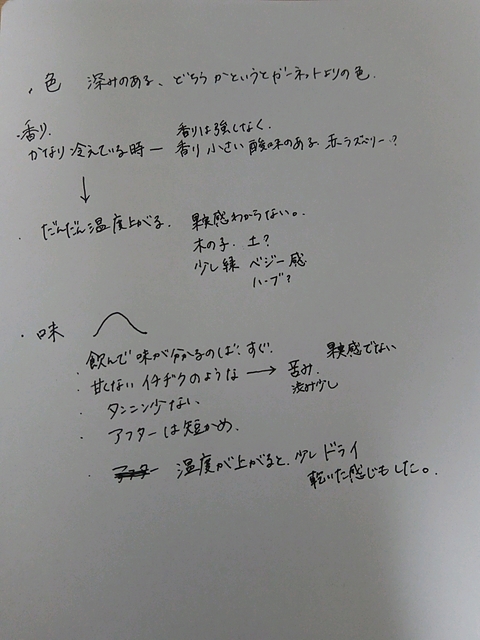 ・色 深みのある、どちらかというとガーネットよりの色。
・香り。
香りは強くなく。
かなり冷えている時 — 香り 小さい 酸味のある 赤ラズベリー？
↓
・だんだん温度上がる。 果実感わからない。
木の子、土？
少し緑 ベジー感
ハーブ？
・味
・飲んで味が分かるのは、すぐ。 果実感でない
・甘くない イチヂクのような → 苦み。
渋み少し
・タンニン少ない
・アフターは短かめ。
・温度が上がると、少しドライ
乾いた感じもした。